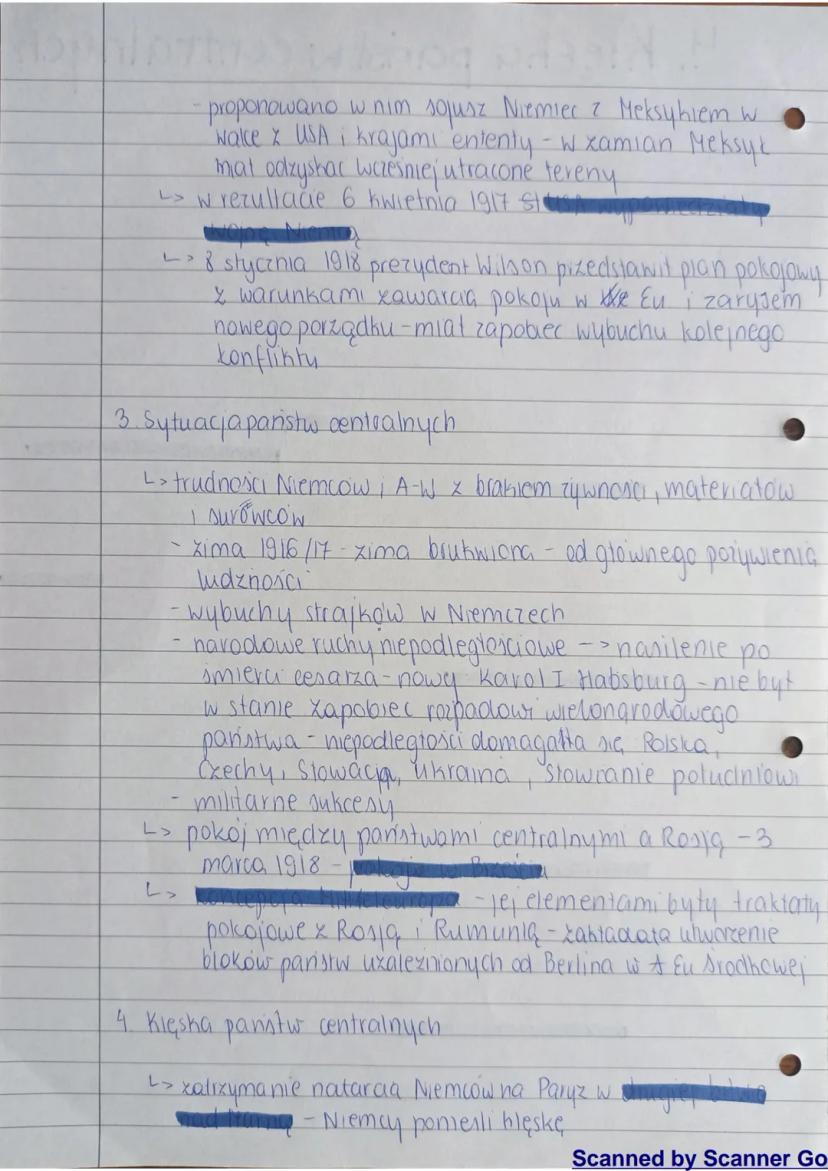 - proponowano w nim sojusz Niemiec z Meksykiem w
walce z USA i krajami ententy - w zamian Meksyk
miał odzyskać wcześniej utracone tereny
↳ w rezultacie 6 kwietnia 1917
↳ 8 stycznia 1918 prezydent Wilson przedstawił plan pokojowy
z warunkami zawarcia pokoju w Eu i zarysem
nowego porządku - miał zapobiec wybuchu kolejnego
konfliktu
3. Sytuacja państw centralnych
↳ trudności Niemców i A-W z brakiem żywności, materiałów
i surowców
- zima 1916/17 - zima brukwiana - od głównego pożywienia
ludzności
- wybuchy strajków w Niemczech
- narodowe ruchy niepodległościowe -> nasilenie po
śmierci cesarza - nowy Karol I Habsburg - nie był
w stanie zapobiec rozpadowi wielonarodowego
państwa - niepodległości domagała się Polska,
Czechy, Słowacja, Ukraina, Słowianie południowi
- militarne sukcesy
↳ pokój między państwami centralnymi a Rosją - 3
marca 1918 - pokój w Brześciu
↳ koncepcja Mitteleuropa - jej elementami były traktaty
pokojowe z Rosją i Rumunią - zakładała utworzenie
bloków państw uzależnionych od Berlina w Eu Środkowej
4. Klęska państw centralnych
↳ zatrzymanie natarcia Niemców na Paryż w drugiej bitwie
nad Marną - Niemcy ponieśli klęskę
Scanned by Scanner Go